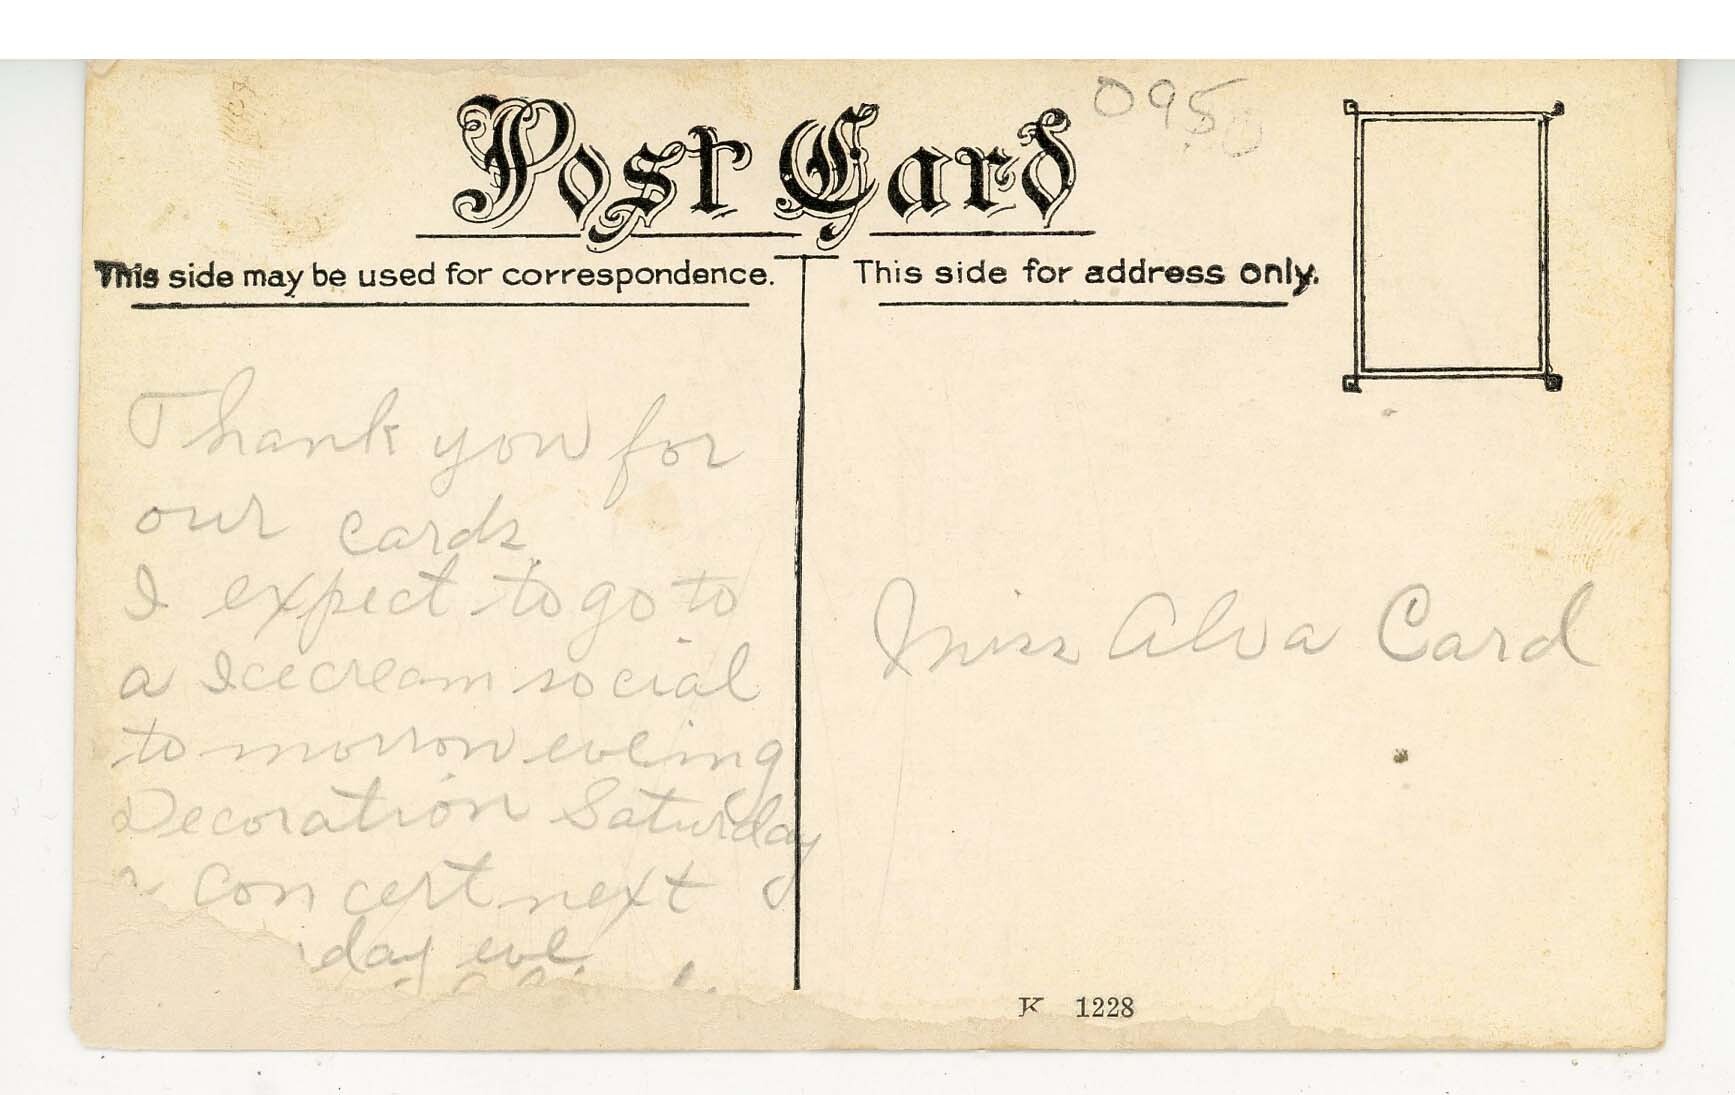 Post Card
0950
This side may be used for correspondence.
This side for address only.
Thank you for
our cards
I expect to go to
a Icecream social
to morrow eveing
Decoration Saturday
concert next
day eve.
Miss Alva Card
K 1228